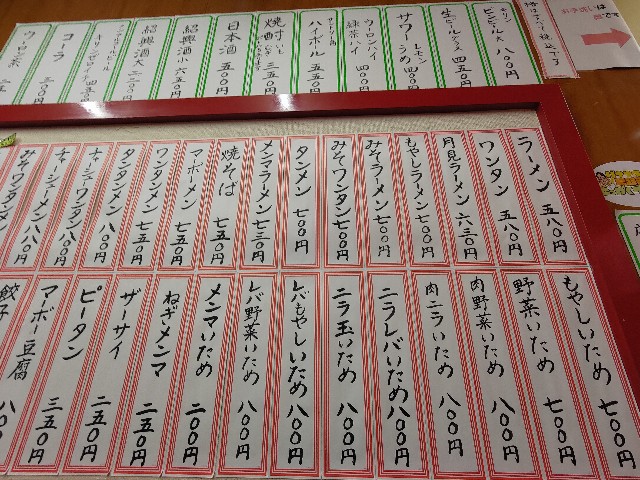 キリンビンビール大 八〇〇円
生ビールグラス 四五〇円
サワー レモン うめ 四〇〇円
ウーロンハイ 緑茶ハイ 四〇〇円
ハイボール 五五〇円
焼酎 三五〇円
日本酒 五〇〇円
紹興酒小 六五〇円
紹興酒大
コーラ
ウーロン茶
ラーメン 五八〇円
ワンタン 五八〇円
月見ラーメン 六三〇円
もやしラーメン 七〇〇円
みそラーメン 七〇〇円
みそワンタン 七〇〇円
タンメン 七〇〇円
メンマラーメン 七三〇円
焼そば 七五〇円
マーボーメン 七五〇円
ワンタンメン 七五〇円
タンタンメン 七五〇円
チャーシューワンタン 八〇〇円
チャーシューメン 八八〇円
みそワンタンメン
もやしいため 七〇〇円
野菜いため 七〇〇円
肉野菜いため 八〇〇円
肉ニラいため 八〇〇円
ニラレバいため 八〇〇円
ニラ玉いため 八〇〇円
レバもやしいため 八〇〇円
レバ野菜いため 八〇〇円
メンマいため 二〇〇円
ねぎメンマ 二五〇円
ザーサイ 二五〇円
ピータン 二五〇円
マーボー豆腐 三五〇円
餃子